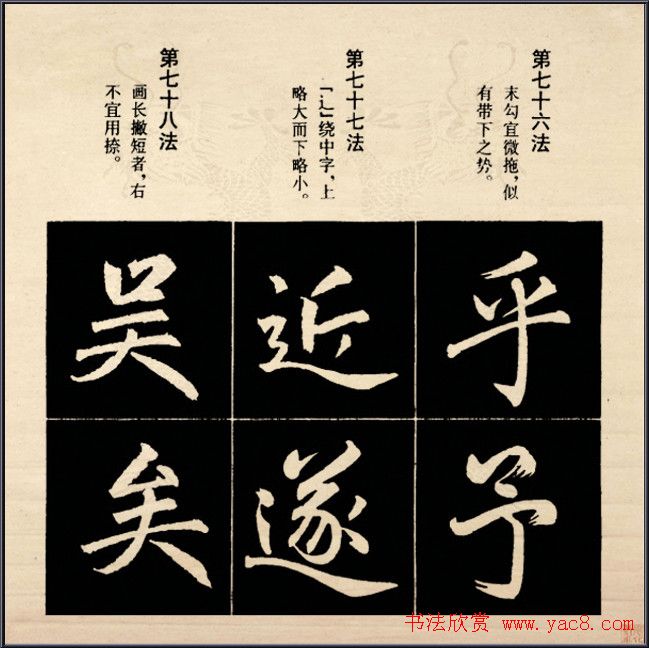 第七十六法
末勾宜微拖，似
有带下之势。
第七十七法
「辶」绕中字，上
略大而下略小。
第七十八法
画长撇短者，右
不宜用捺。
乎
予
近
遂
吴
矣
书法欣赏 www.yac8.com